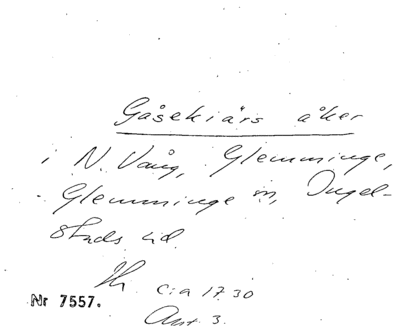 Gåsekiärs åker
i N. Vång, Glemminge,
Glemminge sn, Ingel-
stads hd.
c:a 1730
Nr 7557.
Ant. 3.